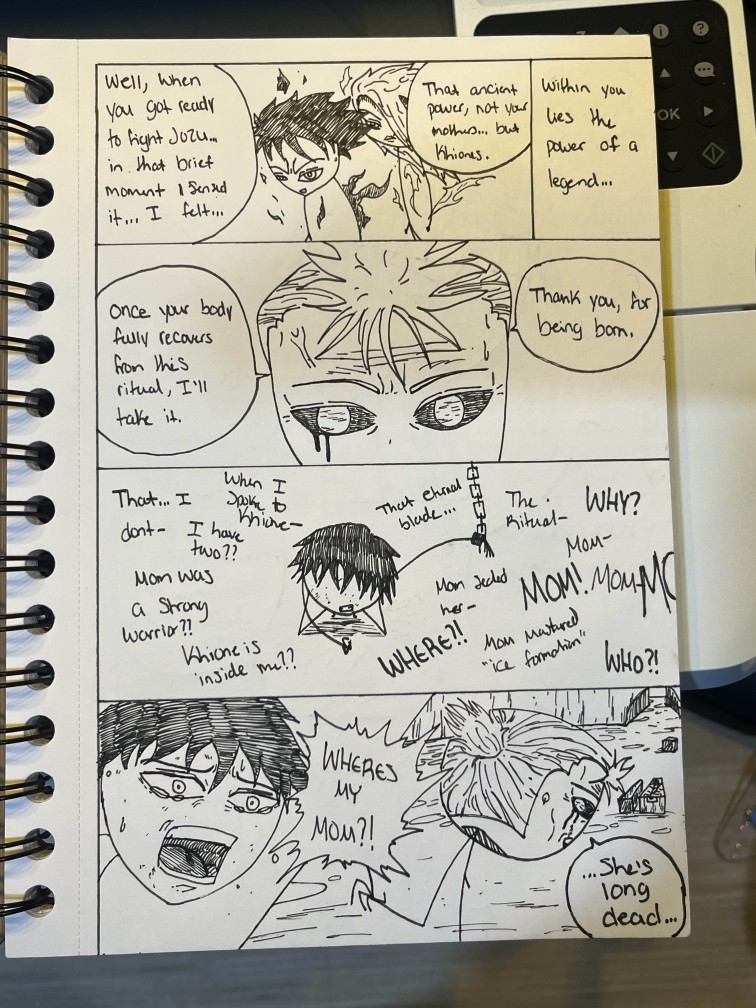 Well, when
you got ready
to fight Jozu...
in that brief
moment I sensed
it... I felt...
That ancient
power, not your
mothers... but
Khiones.
Within you
lies the
power of a
legend...
Once your body
fully recovers
from this
ritual, I'll
take it.
Thank you, for
being born.
That... I
dont-
When I
spoke to
Khione-
I have
two??
Mom was
a strong
warrior??
Khione is
inside me??
That eternal
blade...
The
Ritual-
WHY?
Mom-
MOM!
Mom-
MO
Mom sealed
her-
WHERE?!
Mom
"ice formation"
WHO?!
WHERES
MY
MOM?!
...She's
long
dead...
OK